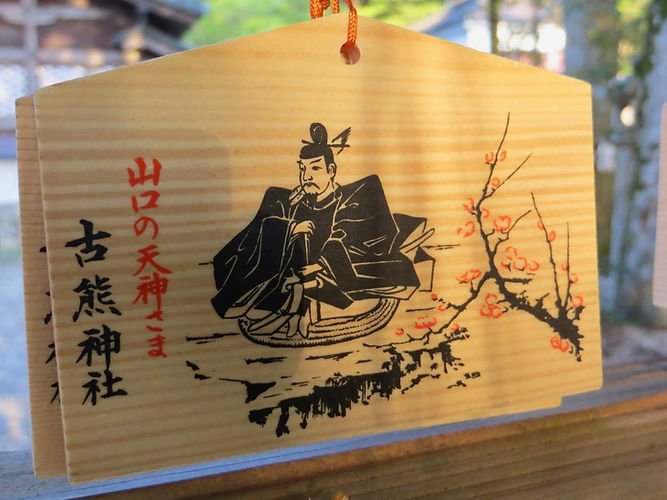 山口の天神さま
古熊神社